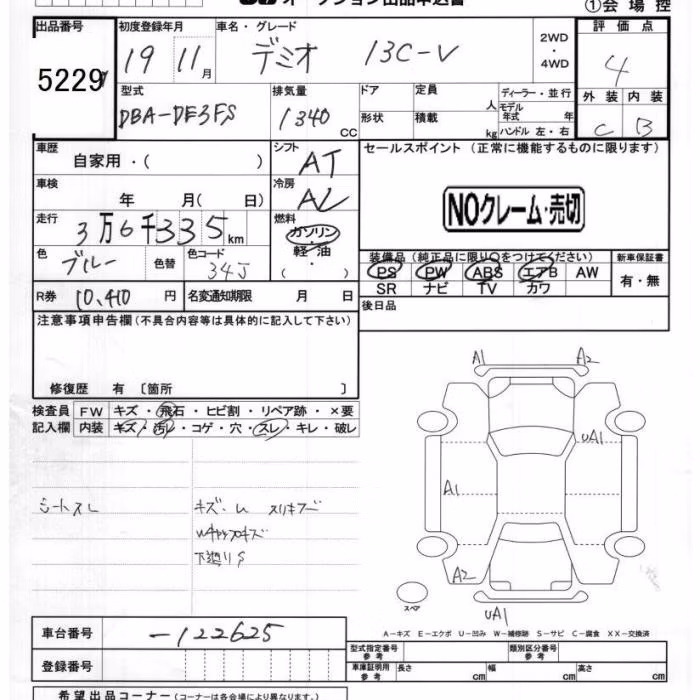 オークション出品申込書
①会場控
出品番号 初度登録年月 車名・グレード 評価点
5229 19 11月 デミオ 13C-V 2WD・4WD 4
型式 排気量 ドア 定員 ディーラー・並行 外装 内装
DBA-DE3FS 1340 CC 形状 積載 人 kg モデル年式 年 ハンドル 左・右 C B
車歴 自家用・( ) シフト AT セールスポイント (正常に機能するものに限ります)
車検 年 月( 日) 冷房 AC
NOクレーム・売切
走行 3万6千335km 燃料 ガソリン・軽・油・( )
色 ブルー 色替 色コード 34J
装備品(純正品に限り○をつけてください) 新車保証書
PS PW ABS エアB AW 有・無
SR ナビ TV カワ
R券 10,410円 名変通知期限 月 日 後日品
注意事項申告欄(不具合内容等は具体的に記入して下さい)
修復歴 有 〔箇所 〕
検査員 FW キズ・飛石・ヒビ割・リペア跡・×要
記入欄 内装 キズ・汚レ・コゲ・穴・スレ・キレ・破レ
シートスレ
キズ・U スリキズ
Wキャップキズ
下廻りS
A1 A2
UA1
A1
A2
スペア
UA1
A-キズ E-エクボ U-凹み W-補修跡 S-サビ C-腐食 XX-交換済
車台番号 -122625
型式指定番号 参考 類別区分番号 参考
登録番号
車庫証明用 参考 長さ cm 幅 cm 高さ cm
希望出品コーナー(コーナーは各会場により異なります。)